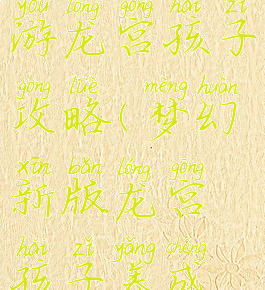 yóu lóng gōng hái zǐ
游龙宫孩子
gōng lüè mèng huàn
攻略(梦幻
xīn bǎn lóng gōng
新版龙宫
hái zǐ yǎng chéng
孩子养成